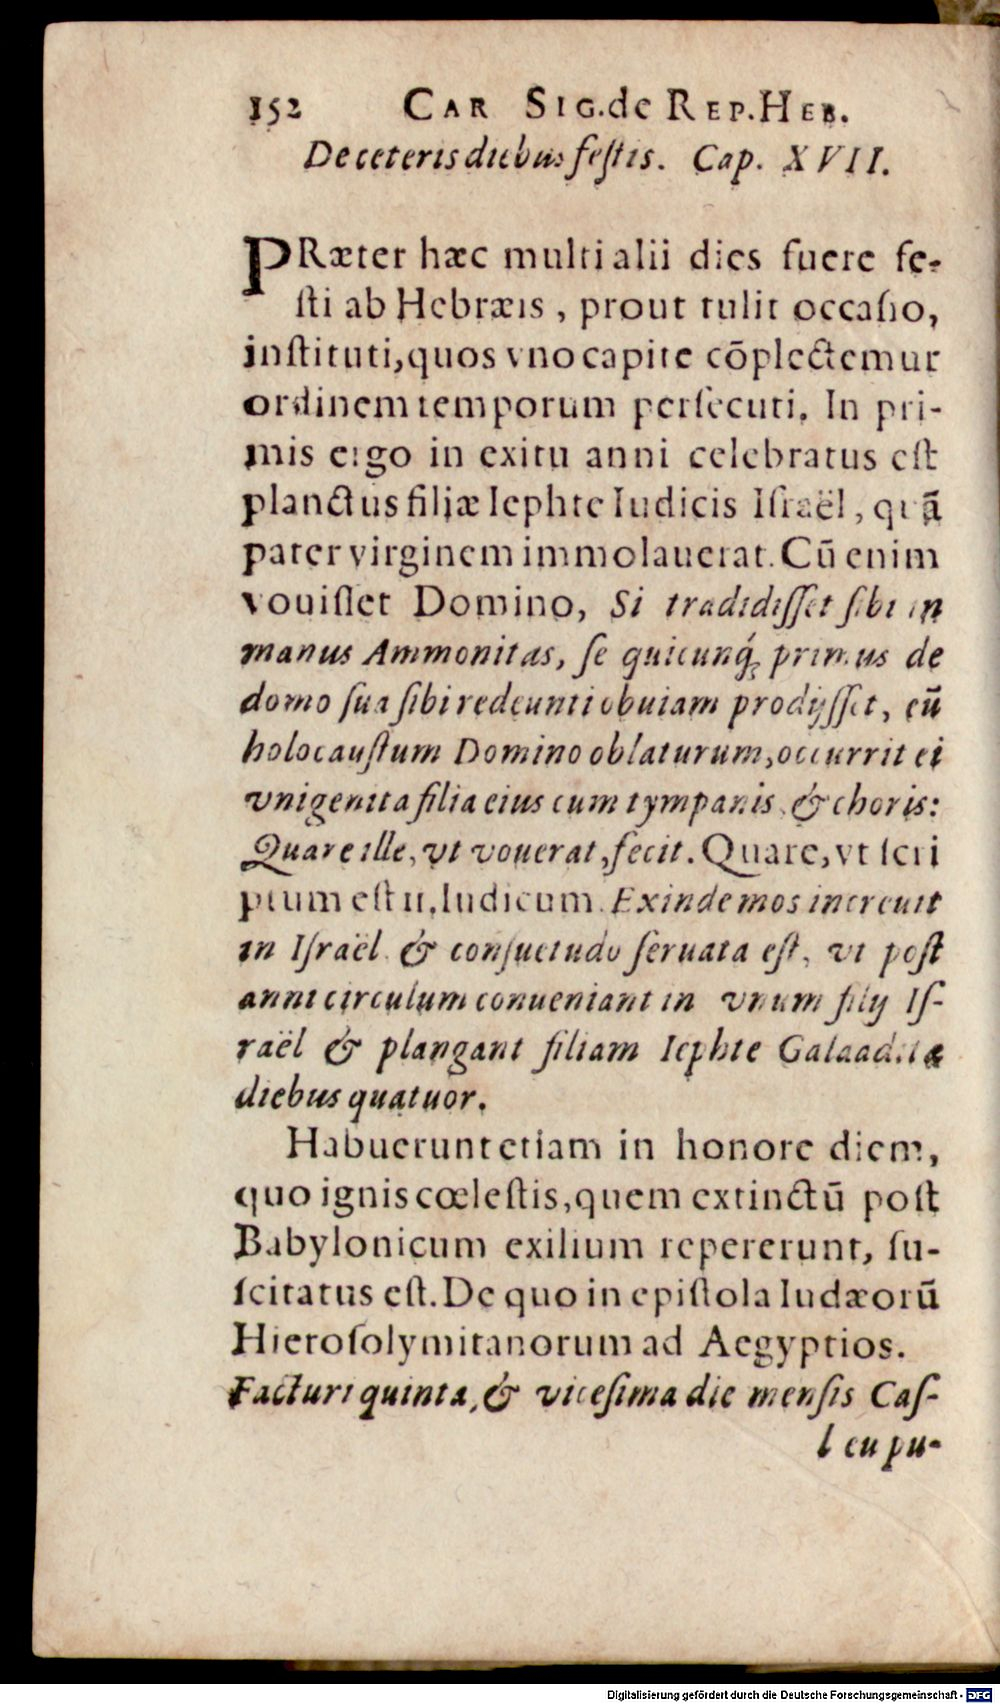 152 CAR SIG.de REP.HEB.
De ceteris diebus festis. Cap. XVII.
PRæter hæc multi alii dies fuere fe-
sti ab Hebræis, prout tulit occasio,
instituti, quos vno capite cõplectemur
ordinem temporum persecuti. In pri-
mis ergo in exitu anni celebratus est
planctus filiæ Iephte Iudicis Israël, quã
pater virginem immolauerat. Cũ enim
vouisset Domino, Si tradidisset sibi in
manus Ammonitas, se quicunq́; primus de
domo sua sibi redeunti obuiam prodijsset, eũ
holocaustum Domino oblaturum, occurrit ei
vnigenita filia eius cum tympanis & choris:
Quare ille, vt vouerat, fecit. Quare, vt scri
ptum est 11. Iudicum. Exinde mos increuit
in Israël & consuetudo seruata est, vt post
anni circulum conueniant in vnum filij Is-
raël & plangant filiam Iephte Galaaditæ
diebus quatuor.
Habuerunt etiam in honore diem,
quo ignis cœlestis, quem extinctũ post
Babylonicum exilium repererunt, su-
scitatus est. De quo in epistola Iudæorũ
Hierosolymitanorum ad Aegyptios.
Facturi quinta, & vicesima die mensis Cas-
leu pu-
Digitalisierung gefördert durch die Deutsche Forschungsgemeinschaft - DFG